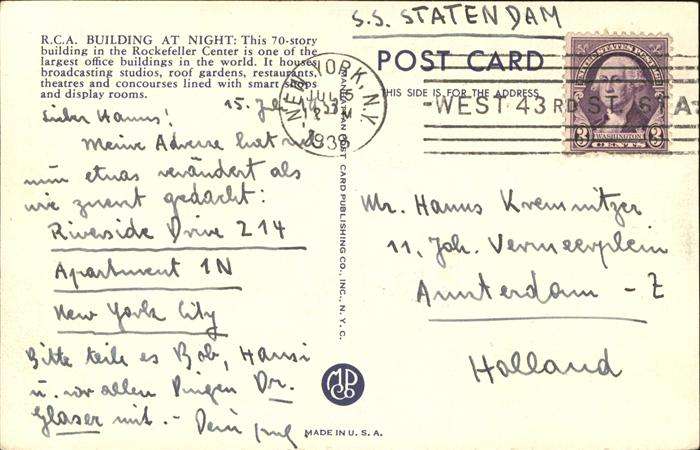 S.S. STATENDAM
R.C.A. BUILDING AT NIGHT: This 70-story
building in the Rockefeller Center is one of the
largest office buildings in the world. It houses
broadcasting studios, roof gardens, restaurants,
theatres and concourses lined with smart shops
and display rooms.
POST CARD
THIS SIDE IS FOR THE ADDRESS
NEW YORK, N.Y.
JUL 15
1938
WEST 43RD ST. STA
UNITED STATES POSTAGE
WASHINGTON
3 3
15. Juli
Lieber Hanns!
Meine Adresse hat sich
nun etwas verändert als
wie zuerst gedacht:
Riverside Drive 214
Apartment 1N
New York City
Bitte teile es Bob, Hansi
u. vor allen Dingen Dr.
Glaser mit. - Dein
MANHATTAN POST CARD PUBLISHING CO., INC., N. Y. C.
Mr. Hanns Kremnitzer
11, Joh. Vermeerplein
Amsterdam - Z
Holland
MADE IN U. S. A.